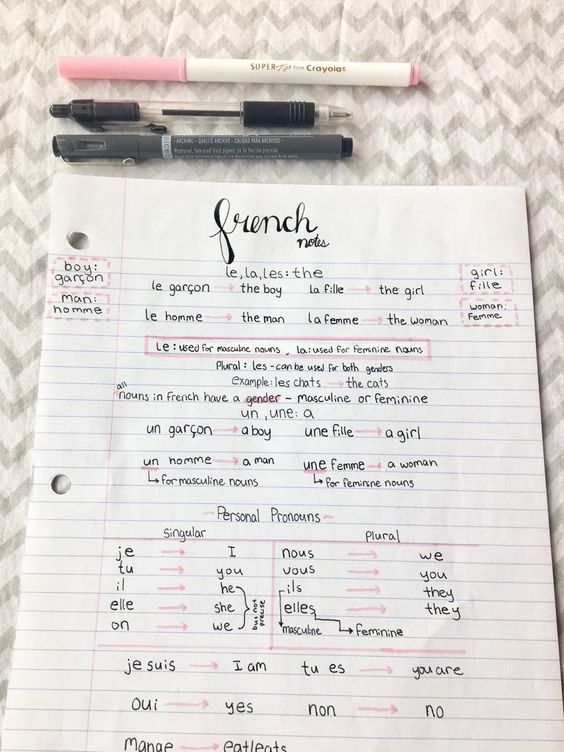 SUPER-Tips from Crayola
ARCHIVAL - QUALITE ARCHIVE - CALIDAD PARA ARCHIVOS
Waterproof, fade-proof black pigment ink for fine-line precision.
french
notes
le, la, les: the
boy:
garçon
girl:
fille
le garçon → the boy la fille → the girl
man:
homme
woman:
Femme
le homme → the man la femme → the woman
le: used for masculine nouns, la: used for feminine nouns
Plural: les - can be used for both genders
example: les chats → the cats
all
nouns in French have a gender - masculine or feminine
un, une: a
un garçon → a boy une fille → a girl
un homme → a man une femme → a woman
↳ for masculine nouns ↳ for feminine nouns
- Personal Pronouns -
Singular Plural
je → I nous → we
tu → you vous → you
il → he ils → they
elle → she elles → they
on → we
but not precise
masculine → feminine
je suis → I am tu es → you are
oui → yes non → no
Mange → eat/eats